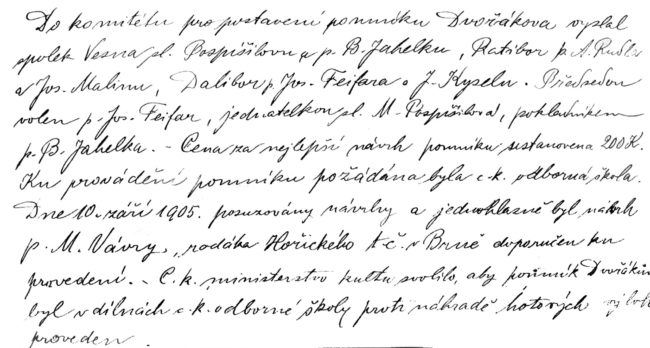 Do komitétu pro postavení pomníku Dvořákova vyslal
spolek Vesna sl. Pospíšilovu a p. B. Jahelku, Ratibor p. A. Rudlo
a Jos. Malinu, Dalibor p. Jos. Feifara a J. Kyselu. Předsedou
volen p. Jos. Feifar, jednatelkou sl. M. Pospíšilova, pokladníkem
p. B. Jahelka. - Cena za nejlepší návrh pomníku se stanovena 200 K.
Ku provádění pomníku požádána byla c. k. odborná škola.
Dne 10. září 1905. posuzovány návrhy a jednohlasně byl návrh
p. M. Vávry, rodáka Hořického t. č. v Brně doporučen ku
provedení. - C. k. ministerstvo kultu svolilo, aby pomník Dvořákův
byl v dílnách c. k. odborné školy proti náhradě hotových výloh
proveden.